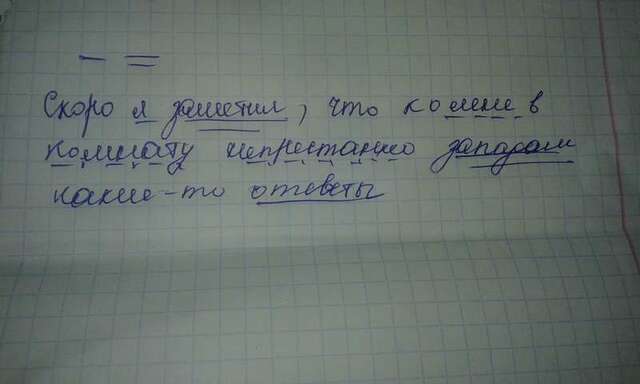 Скоро я заметил, что ко мне в
комнату непрестанно западают
какие-то ответы